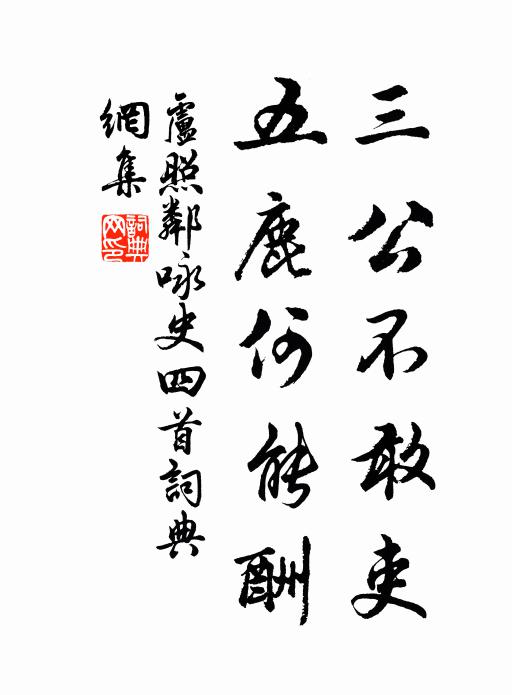 三公不敢吏
五鹿何能酬
盧照鄰咏史四首詞典
網集
詞典網印